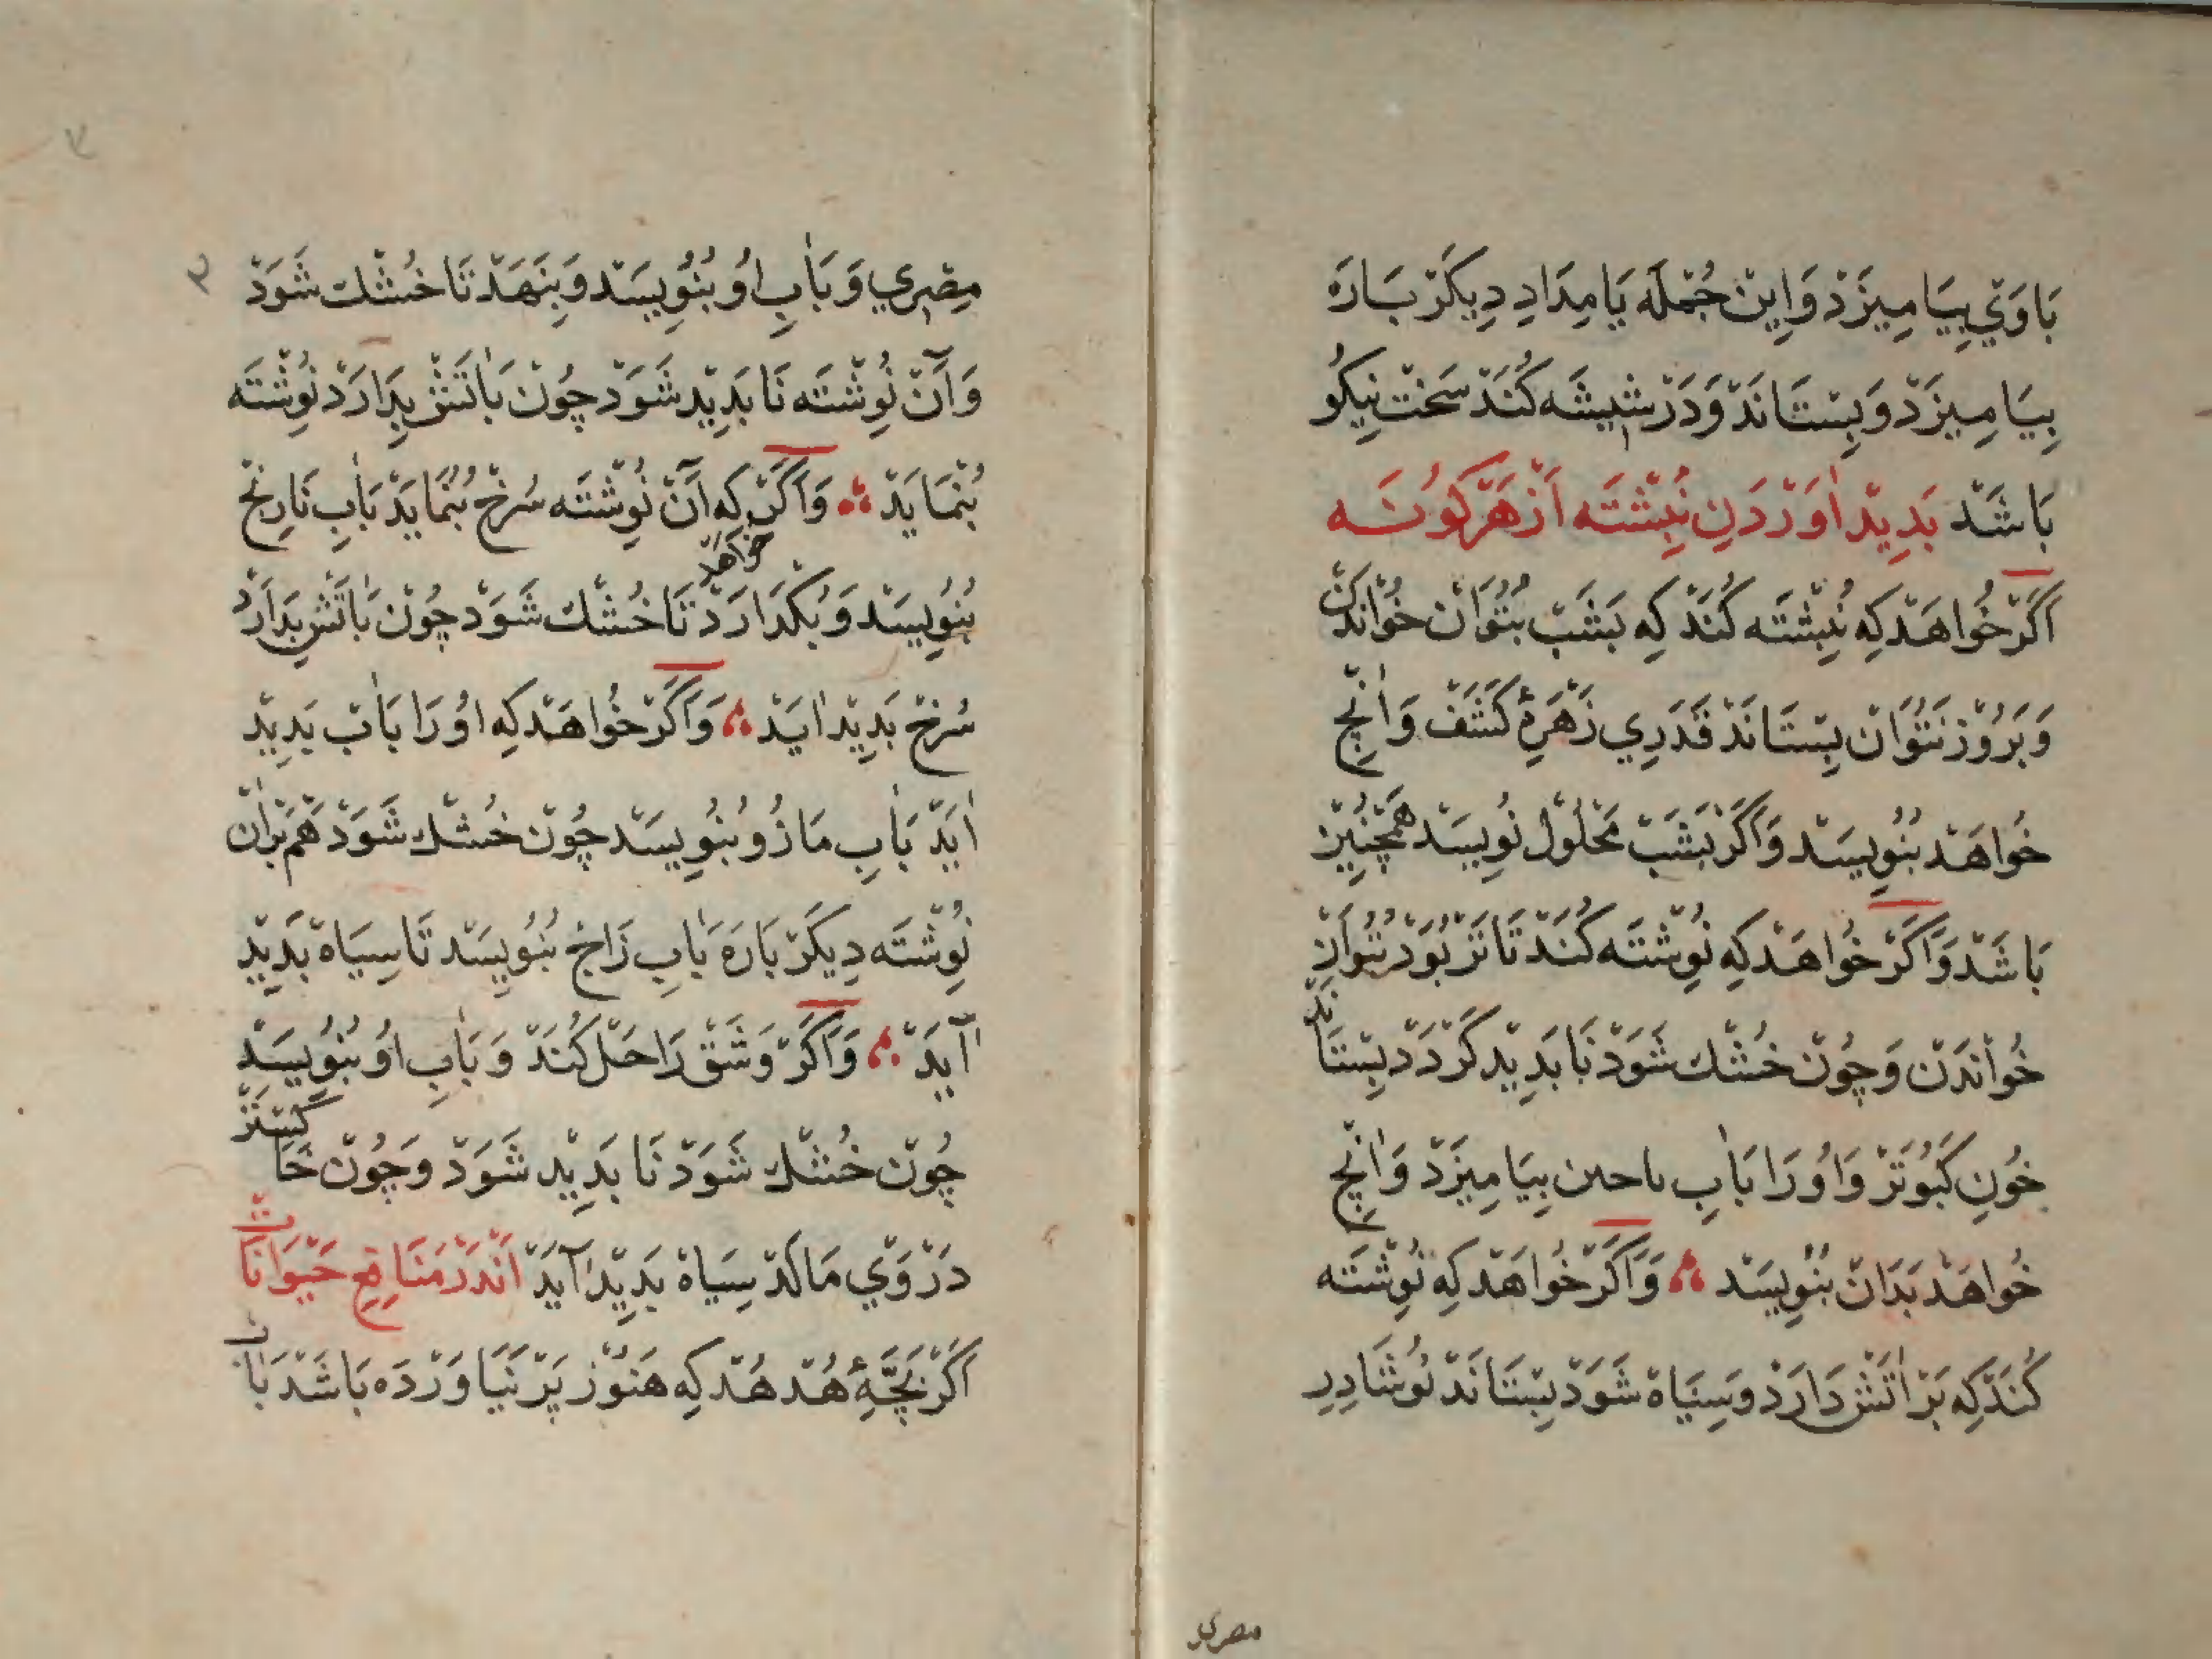 بَاوَيْ بِيَامِيزَدْ وَاِينْ جُمْلَه يَا مِدَادِ دِيكَرْ بَارَه
بِيَامِيزَدْ وَبِسْتَانَدْ وَدَرْ شِيشَه كُنَدْ سَخْت نِيكُو
بَاشَدْ بَدِيدْ اٰوَرْدَنِ نُبِشْتَه اَزْ هَرْ كُونَه
اَكَرْ خُواهَدْ كِه نُبِشْتَه كُنَدْ كِه بَشَبْ بُتُوَانْ خُوٰاندَنْ
وَبَرُوْز نَتُوَانْ بِسْتَانَدْ قَدَرِي زَهْرَهٔ كَشَفْ وَاٰنْچِ
خُواهَدْ بُنُوِيسَدْ وَاَكَرْ بَشَبْ مَحْلُوْل نُوِيسَدْ هَمْچُنِينْ
بَاشَدْ وَاَكَرْ خُواهَدْ كِه نُوِشْتَه كُنَدْ تَا تَرْ بُوَدْ بُتُوَانْ
خُوٰاندَنْ وَچُونْ خُشْك شَوَدْ نَا بَدِيدْ كَرْدَدْ بِسْتَانَدْ
خُونِ كَبُوتَرْ وَاُورَا بَاٰبِ بِيَامِيزَدْ وَاٰنْچِ
خُواهَدْ بَدَانْ بُنُوِيسَدْ وَاَكَرْ خُواهَدْ كِه نُوِشْتَه
كُنَدْ كِه بَرْ اٰتَشْ دَارَدْ وَسِيَاهْ شَوَدْ بِسْتَانَدْ نُوشَادِرِ
مصرى
مِصْرِي وَبَاٰبِ اُو بُنُوِيسَدْ وَبِنَهَدْ تَا خُشْك شَوَدْ
وَآنْ نُوِشْتَه نَا بَدِيدْ شَوَدْ چُونْ بَاٰتَشْ بِدَارَدْ نُوِشْتَه
بُنْمَايَدْ وَاَكَرْ خواهد كِه آنْ نُوِشْتَه سُرْخ بُنْمَايَدْ بَاٰبِ نَارِنْج
بُنُوِيسَدْ وَبُكْذَارَدْ تَا خُشْك شَوَدْ چُونْ بَاٰتَشْ بِدَارَدْ
سُرْخ بَدِيدْ اٰيَدْ وَاَكَرْ خُواهَدْ كِه اُورَا بَاٰبْ بَدِيدْ
اٰيَدْ بَاٰبِ مَازُو بُنُوِيسَدْ چُونْ خُشْك شَوَدْ هَمْ بَرْاٰنْ
نُوِشْتَه دِيكَرْ بَارَه بَاٰبِ زَاج بُنُوِيسَدْ تَا سِيَاهْ بَدِيدْ
آيَدْ وَاَكَرْ وَشَقْ رَا حَلْ كُنَدْ وَبَاٰبِ اُو بُنُوِيسَدْ
چُونْ خُشْك شَوَدْ نَا بَدِيدْ شَوَدْ وَچُونْ خَاكِسْتَرْ
دَرْ وَيْ مَالَدْ سِيَاهْ بَدِيدْ آيَدْ اَنْدَرْ مَنَافِعِ حَيْوَانَاتْ
اَكَرْ بَچَّهٔ هُدْهُدْ كِه هَنُوْز پَرْ نَيَاوَرْدَه بَاشَدْ بَاٰبْ